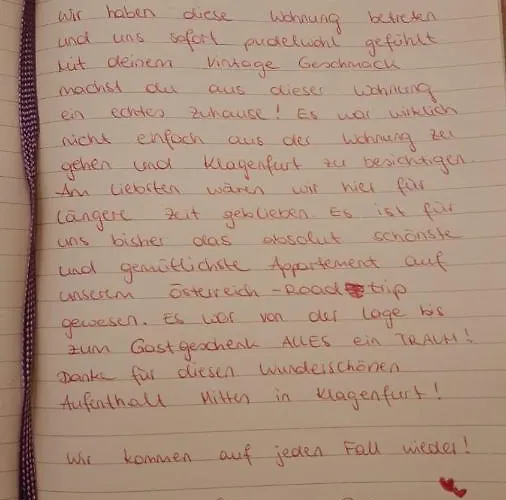 Wir haben diese Wohnung betreten
und uns sofort pudelwohl gefühlt
Mit deinem Vintage Geschmack
machst du aus dieser Wohnung
ein echtes Zuhause! Es war wirklich
nicht einfach aus der Wohnung zu
gehen und Klagenfurt zu besichtigen.
Am Liebsten wären wir hier für
Längere Zeit geblieben. Es ist für
uns bisher das absolut schönste
und gemütlichste Appartement auf
unserem Österreich-Roadtrip
gewesen. Es war von der Lage bis
zum Gastgeschenk ALLES ein TRAUM!
Danke für diesen Wunderschönen
Aufenthalt Mitten in Klagenfurt!
Wir kommen auf jeden Fall wieder!